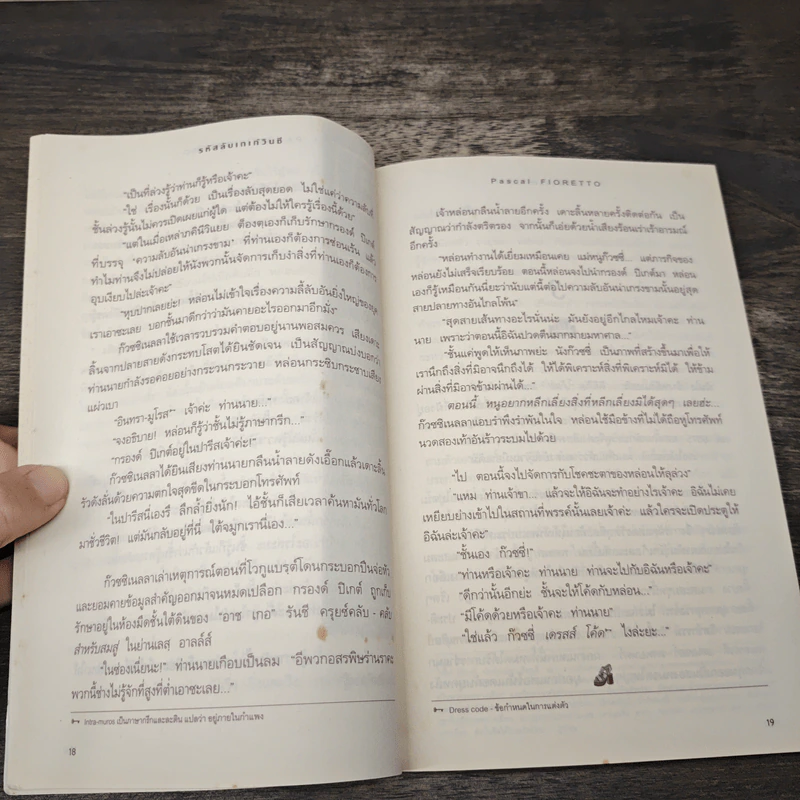 รหัสลับเกย์วินชี
"เป็นที่ล่วงรู้ว่าท่านก็รู้หรือเจ้าคะ"
"ใช่ เรื่องนั้นก็ด้วย เป็นเรื่องลับสุดยอด ไม่ใช่แค่ว่าความลับที่
ชั้นล่วงรู้นั้นไม่ควรเปิดเผยแก่ผู้ใด แต่ต้องไม่ให้ใครรู้เรื่องนี้ด้วย"
"แต่ในเมื่อเหล่าภคินีวิแยย ต้องตุเองก็เก็บรักษากรองด์ ปิเกต์
ที่บรรจุ 'ความลับอันน่าเกรงขาม' ที่ท่านเองก็ต้องการซ่อนเร้น แล้ว
ทำไมท่านจึงไม่ปล่อยให้นังพวกนั้นจัดการเก็บงำสิ่งที่ท่านเองก็ต้องการ
อุบเงียบไปล่ะเจ้าคะ"
"หุบปากเลยย่ะ! หล่อนไม่เข้าใจเรื่องความลี้ลับอันยิ่งใหญ่ของมุค
เราเอาซะเลย บอกชั้นมาดีกว่าว่ามันคายอะไรออกมาอีกมั่ง"
ก๊วซซีเนลลาใช้เวลารวบรวมคำตอบอยู่นานพอสมควร เสียงเดาะ
ลิ้นจากปลายสายดังกระทบโสตได้ยินชัดเจน เป็นสัญญาณบ่งบอกว่า
ท่านนายกำลังรอคอยอย่างกระวนกระวาย หล่อนกระซิบกระซาบเสียง
แผ่วเบา
"อินทรา-มูโรส* เจ้าค่ะ ท่านนาย..."
"จงอธิบาย! หล่อนก็รู้ว่าชั้นไม่รู้ภาษากรีก..."
"กรองด์ ปิเกต์อยู่ในปารีสเจ้าค่ะ!"
ก๊วซซีเนลลาได้ยินเสียงท่านนายกลืนน้ำลายดังเอื๊อกแล้วเดาะลิ้น
รัวดังลั่นด้วยความตกใจสุดขีดในกระบอกโทรศัพท์
"ในปารีสนี่เองรึ ลึกล้ำยิ่งนัก! ไอ้ชั้นก็เสียเวลาค้นหามันทั่วโลก
มาชั่วชีวิต! แต่มันกลับอยู่ที่นี่ ใต้จมูกเรานี่เอง..."
ก๊วซซีเนลลาเล่าเหตุการณ์ตอนที่โวกูแบรต์โดนกระบอกปืนจ่อหัว
และยอมคายข้อมูลสำคัญออกมาจนหมดเปลือก กรองด์ ปิเกต์ ถูกเก็บ
รักษาอยู่ในห้องมืดชั้นใต้ดินของ "อาซ เกอ" รันซี ครุยซ์คลับ - คลับ
สำหรับสมสู่ ในย่านเลส อาลล์ส์
"ในซ่องเนี่ยนะ!" ท่านนายเกือบเป็นลม "อีพวกอสรพิษร่านราคะ
พวกนี้ช่างไม่รู้จักที่สูงที่ต่ำเอาซะเลย..."
Intra-muros เป็นภาษากรีกและละติน แปลว่า อยู่ภายในกำแพง
18
Pascal FIORETTO
เจ้าหล่อนกลืนน้ำลายอีกครั้ง เดาะลิ้นหลายครั้งติดต่อกัน เป็น
สัญญาณว่ากำลังตริตรอง จากนั้นก็เอ่ยด้วยน้ำเสียงร้อนเร่าเร้าอารมณ์
อีกครั้ง
"หล่อนทำงานได้เยี่ยมเหมือนเคย แม่หนูก๊วซซี่... แต่ภารกิจของ
หล่อนยังไม่เสร็จเรียบร้อย ตอนนี้หล่อนจงไปนำกรองด์ ปิเกต์มา หล่อน
เองก็รู้เหมือนกันนี่ยะว่านับแต่นี้ต่อไปความลับอันน่าเกรงขามนั้นอยู่สุด
สายปลายทางอันไกลโพ้น"
"สุดสายเส้นทางอะไรนั่นน่ะ มันยังอยู่อีกไกลไหมเจ้าคะ ท่าน
นาย เพราะว่าตอนนี้อิฉันปวดตีนมากมายมหาศาล..."
"ชั้นแค่พูดให้เห็นภาพย่ะ นังก๊วซซี่ เป็นภาพที่สร้างขึ้นมาเพื่อให้
เรานึกถึงสิ่งที่มิอาจนึกถึงได้ ให้ได้พิเคราะห์สิ่งที่พิเคราะห์มิได้ ให้ข้าม
ผ่านสิ่งที่มิอาจข้ามผ่านได้..."
ตอนนี้ หนูอยากหลีกเลี่ยงสิ่งที่หลีกเลี่ยงมิได้สุดๆ เลยฮ่ะ...
ก๊วซซีเนลลาแอบรำพึงรำพันในใจ หล่อนใช้มือข้างที่ไม่ได้ถือหูโทรศัพท์
นวดสองเท้าอันร้าวระบมไปด้วย
"ไป ตอนนี้จงไปจัดการกับโชคชะตาของหล่อนให้ลุล่วง"
"แหม ท่านเจ้าขา... แล้วจะให้อิฉันจะทำอย่างไรเจ้าคะ อิฉันไม่เคย
เหยียบย่างเข้าไปในสถานที่พรรค์นั้นเลยเจ้าค่ะ แล้วใครจะเปิดประตูให้
อิฉันล่ะเจ้าคะ"
"ชั้นเอง ก๊วซซี่!"
"ท่านหรือเจ้าคะ ท่านนาย ท่านจะไปกับอิฉันหรือเจ้าคะ"
"ดีกว่านั้นอีกย่ะ ชั้นจะให้โค้ดกับหล่อน..."
"มีโค้ดด้วยหรือเจ้าคะ ท่านนาย"
"ใช่แล้ว ก๊วซซี่ เดรสส์ โค้ด* ไงล่ะยะ..."
Dress code - ข้อกำหนดในการแต่งตัว
19